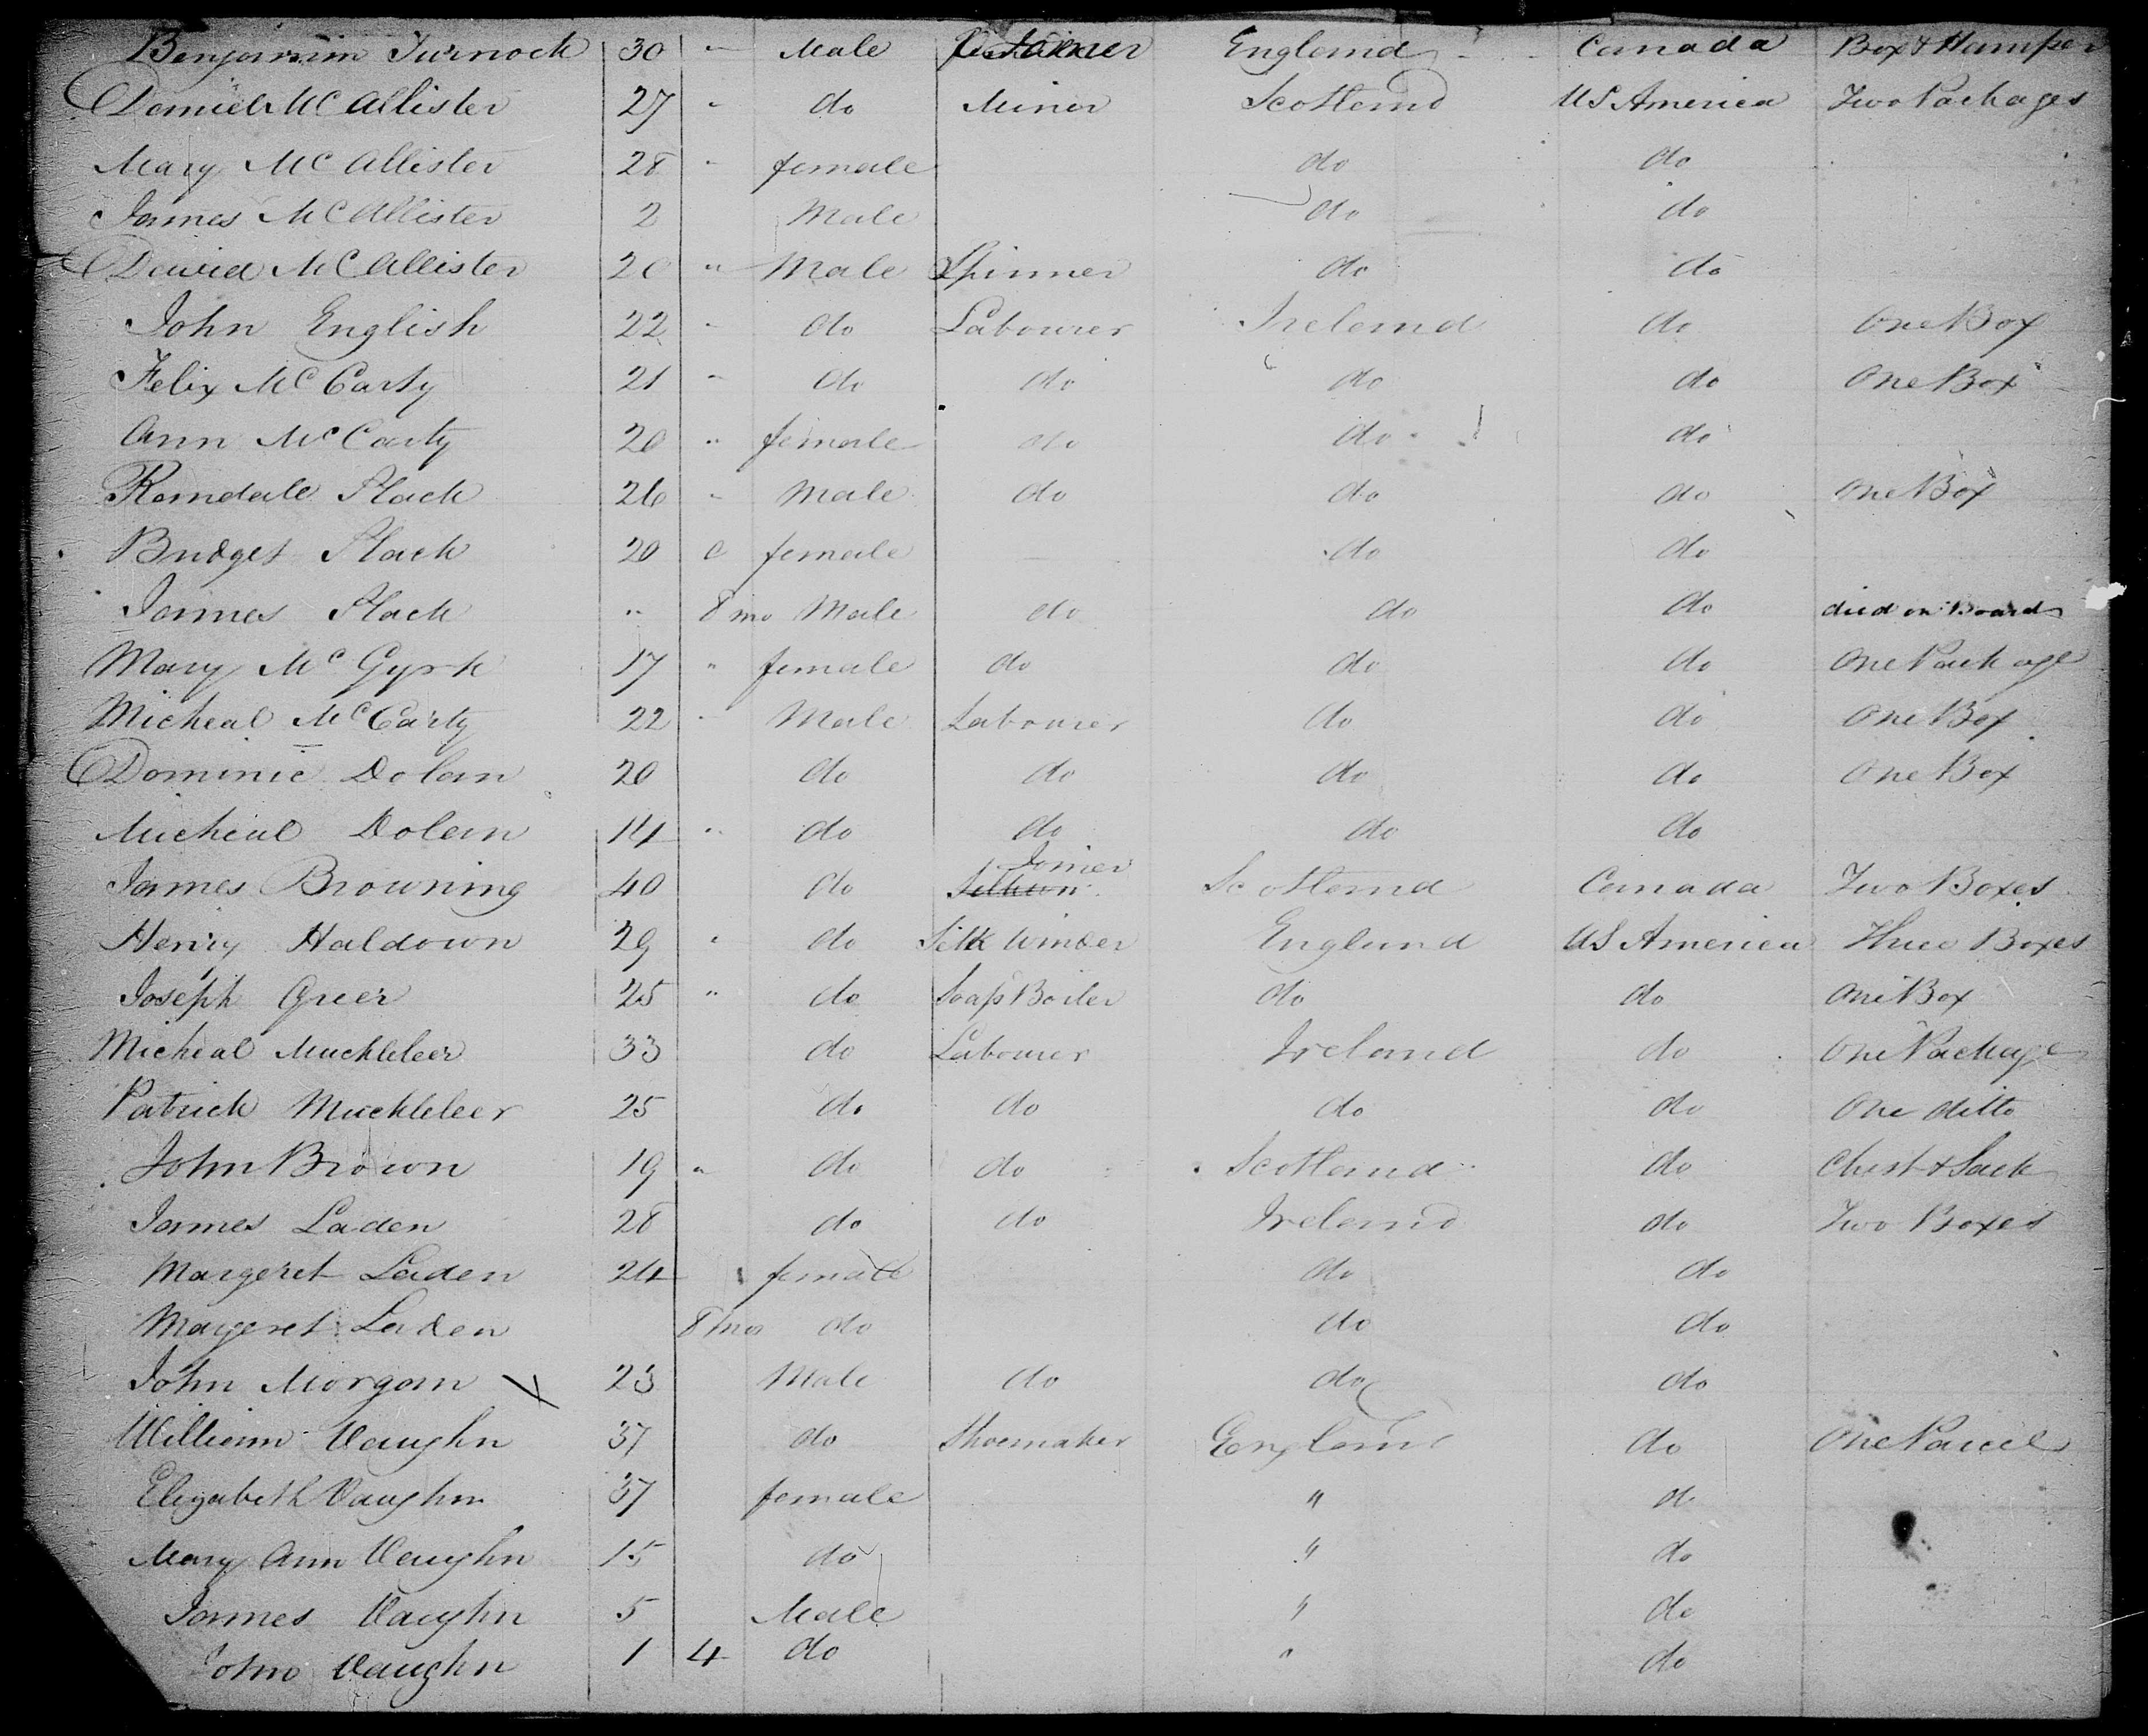 Benjamin Turnock 30 " Male Joiner England Canada Box & Hamper
Daniel McAllister 27 " do Miner Scotland US America Two Packages
Mary McAllister 28 " female do do
James McAllister 2 Male do do
David McAllister 20 " Male Spinner do do
John English 22 " do Labourer Ireland do One Box
Felix McCarty 21 " do do do do One Box
Ann McCarty 20 " female do do do
Ramdale Slack 26 " Male do do do One Box
Bridget Slack 20 0 female do do
James Slack " 8 mo Male do do do died on Board
Mary McGyrk 17 " female do do do One Package
Micheal McCarty 22 " Male Labourer do do One Box
Dominic Dolan 20 do do do do One Box
Micheal Dolan 14 " do do do do
James Browning 40 do Joiner Scotland Canada Two Boxes
Henry Haldown 29 " do Silk Winder England US America Three Boxes
Joseph Greer 25 " do Soap Boiler do do One Box
Micheal Muckleleer 33 do Labourer Ireland do One Package
Patrick Muckleleer 25 do do do do One ditto
John Brown 19 " do do Scotland do Chest & Sack
James Laden 28 do do Ireland do Two Boxes
Margeret Laden 24 female do do
Margeret Laden 8 mo do do do
John Morgan 23 Male do do do
William Vaughn 37 do Shoemaker England do One Parcel
Elizabeth Vaughn 37 female " do
Mary Ann Vaughn 15 do " do
James Vaughn 5 Male " do
John Vaughn 1 4 do " do